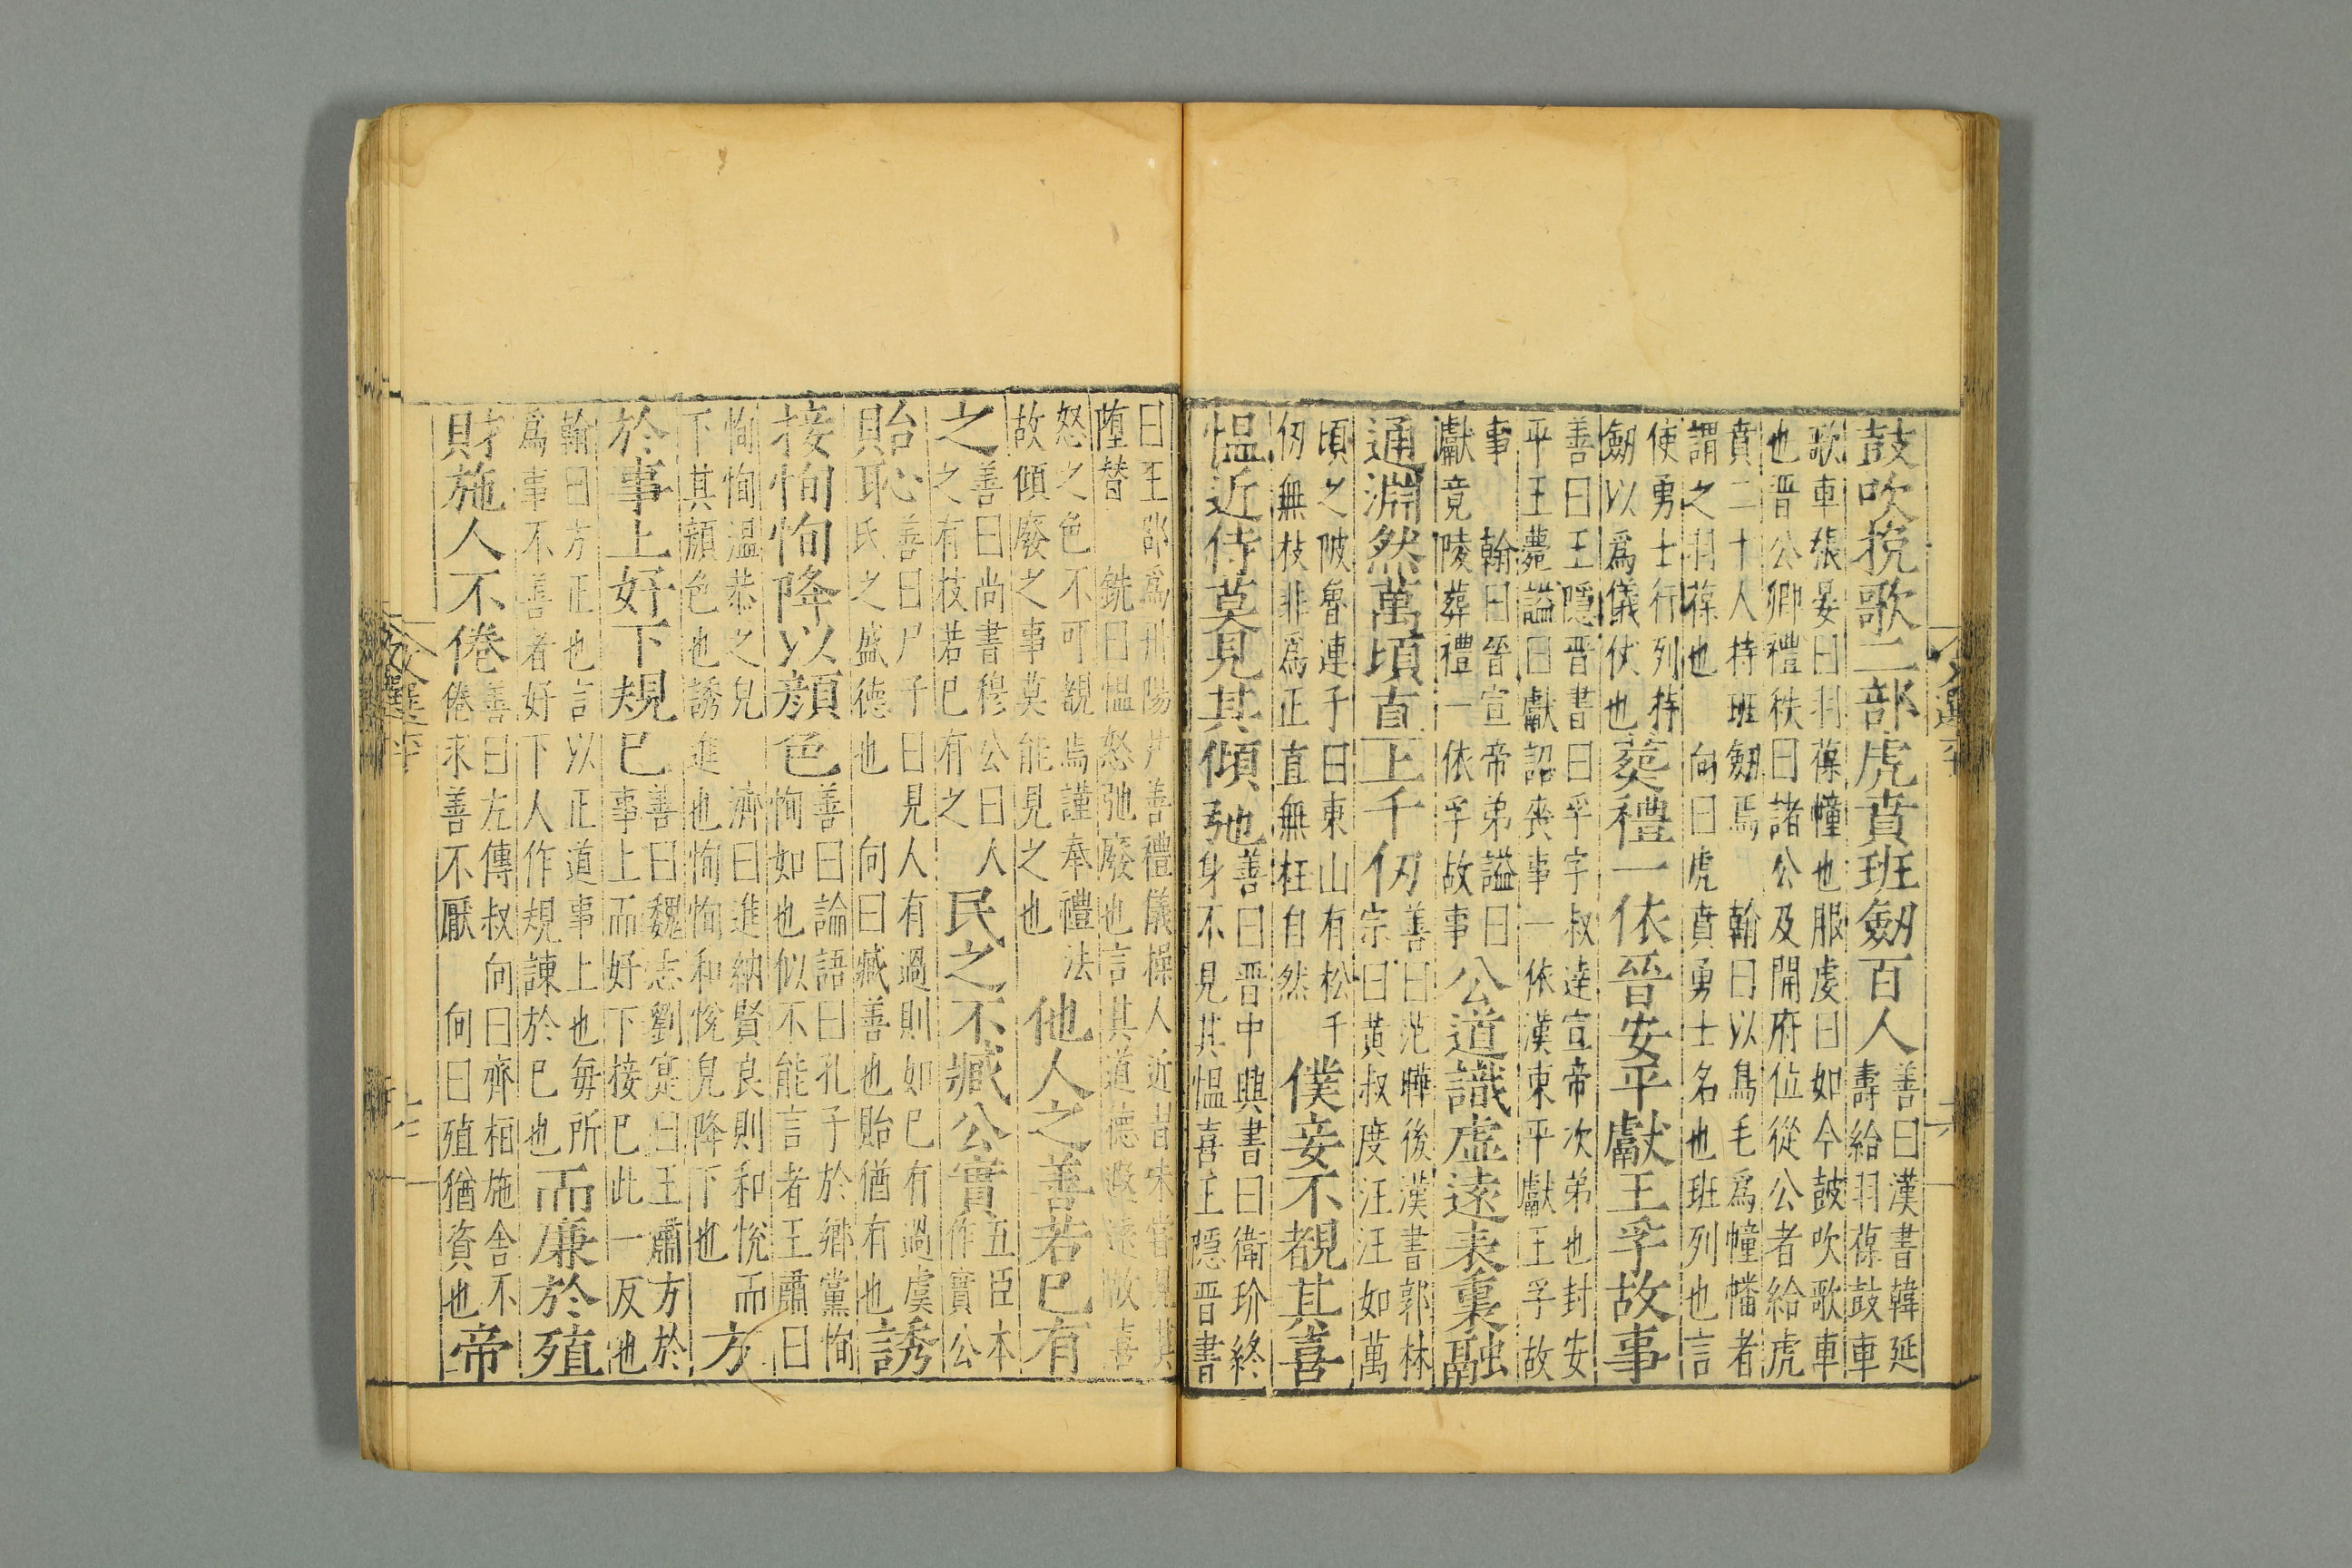 鼓吹挽歌二部虎賁班劒百人善曰漢書韓延
壽給羽葆鼓車
歌車張晏曰羽葆幢也服虔曰如今鼓吹歌車
也晋公卿禮秩曰諸公及開府位從公者給虎
賁二十人持班劒焉　翰曰以鳥毛爲幢幡者
謂之羽葆也　向曰虎賁勇士名也班列也言
使勇士行列持
劒以爲儀仗也葬禮一依晉安平獻王孚故事
善曰王隱晋書曰孚字叔達宣帝次弟也封安
平王薨謚曰獻詔喪事一依漢東平獻王孚故
事　翰曰晉宣帝弟謚曰
獻竟陵葬禮一依孚故事公道識虚遠表裏融
通淵然萬頃直上千仞善曰范曄後漢書郭林
宗曰黃叔度汪汪如萬
頃之陂魯連子曰東山有松千
仞無枝非爲正直無枉自然　僕妾不覩其喜
愠近侍莫見其傾弛善曰晋中興書曰衛玠終
身不見其愠喜王隱晋書
曰王邵爲丹陽尹善禮儀操人近昔未嘗見其
墮替　銑曰愠怒弛廢也言其道德邃遠故喜
怒之色不可覩焉謹奉禮法
故傾廢之事莫能見之也　他人之善若已有
之善曰尚書穆公曰人
之有技若已有之　民之不臧公實五臣本
作實公
貽恥善曰尸子曰見人有過則如已有過虞
氏之盛德也　向曰臧善也貽猶有也誘
接恂恂降以顔色善曰論語曰孔子於鄉黨恂
恂如也似不能言者王肅曰
恂恂溫恭之皃　濟曰進納賢良則和恱而
下其顔色也誘進也恂恂和恱皃降下也　方
於事上好下規已善曰魏志劉寔曰王肅方於
事上而好下接已此一反也
翰曰方正也言以正道事上也每所
爲事不善者好下人作規諫於已也而廉於殖
財施人不倦善曰左傳叔向曰齊桓施舍不
倦求善不厭　向曰殖猶資也帝